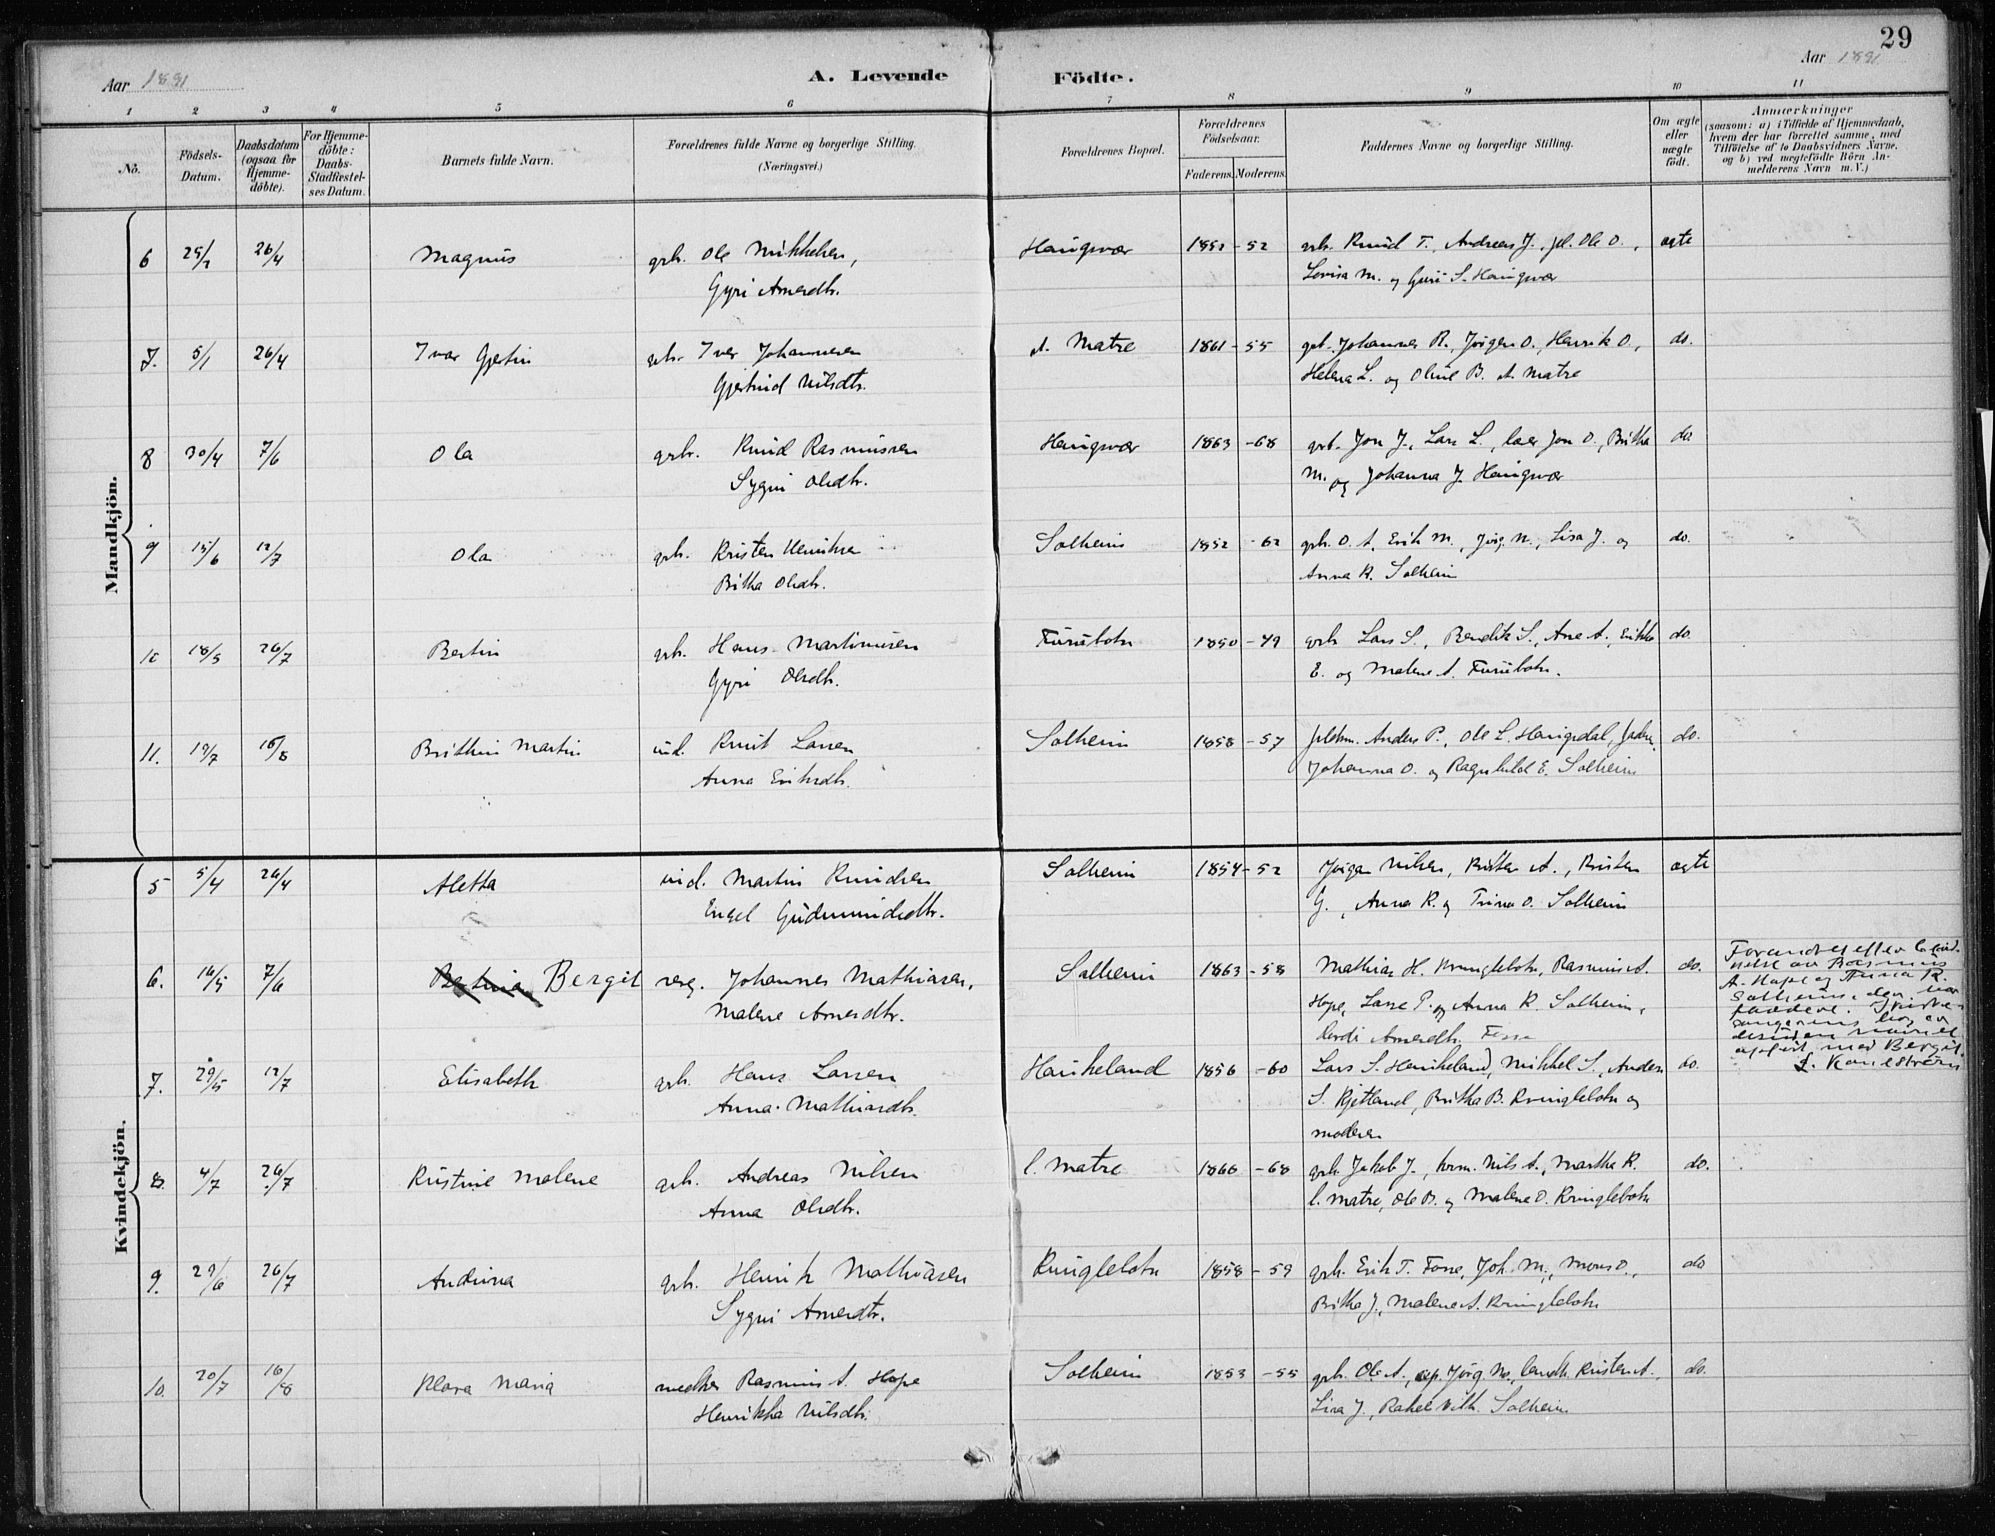 29
Aar 1891.
A. Levende Födte.
Aar 1891
1 2 3 4 5 6 7 8 9 10 11
No.
Födsels-
Datum.
Daabsdatum
(ogsaa for
Hjemme-
döbte).
For Hjemme-
döbte:
Daabs-
Stadfæstel-
ses Datum.
Barnets fulde Navn.
Forældrenes fulde Navne og borgerlige Stilling.
(Næringsvei.)
Forældrenes Bopæl.
Forældrenes
Födselsaar.
Faderens. Moderens.
Faddernes Navne og borgerlige Stilling.
Om ægte
eller
uægte
födt.
Anmærkninger
(saasom: a) i Tilfælde af Hjemmedaab,
hvem der har forrettet samme, med
Tilföielse af to Daabsvidners Navne,
og b) ved uægtefödte Börn An-
melderens Navn m. V.)
Mandkjön.
6 25/2 26/4 Magnus grb. Ole Mikkelsen, Haugsvær 1852 - 52 grb. Knud T., Andreas J., pl. Ole O., ægte
Gyri Arnesdtr. Lovisa M. og Guri S. Haugsvær
7. 5/1 26/4 Ivar Gjertin grb. Iver Johannesen Matre 1861 - 55 grb. Johannes R., Jörgen O., Henrik O., do.
Gjertrud Nilsdtr. Helena L. og Oline B. Matre
8 30/4 7/6 Ola grbr. Knud Rasmussen Haugsvær 1863 - 68 grb. Jon J., Lars L., Jon O., Britha do
Sygni Olsdtr. M. og Johanna J. Haugsvær
9 15/6 12/7 Ola grb. Kristen Henriksen Solheim 1852 - 62 grb. O. A., Erik M., Jörg. N., Lisa J. og do.
Britha Olsdtr. Anna R. Solheim
10 18/5 26/7 Bertin grb. Hans Martinusen Furubotn 1850 - 49 grb. Lars S., Bendik S., Ane A., Erikka do.
Gyri Olsdtr. E. og Malene A. Furubotn.
11. 19/7 16/8 Brithin Martin ind. Knut Larsen Solheim 1858 - 57 Anders P., Ole L. Haugsdal, do.
Anna Eriksdtr. Johanna O. og Ragnhild E. Solheim
Kvindekjön.
5 5/4 26/4 Aletta ind. Martin Knudsen Solheim 1854 - 52 Jörgen Nilsen, A., Kristen ægte
Engel Gudmundsdtr. G., Anna R. og Trina O. Solheim
6. 16/5 7/6 Bertina Bergit Johannes Mathiasen, Solheim 1863 - 58 Mathias H. Kringlebotn, Rasmus A. do.
Malene Arnesdtr. Hope, Lasse P. og Anna R. Solheim,
Gerdi Arnesdtr.
Forandret efter
av Rasmus
A. Hope og Anna R.
Solheim, der var
faddere.
desuden navnet
opført med Bergit.
7. 29/5 12/7 Elisabeth grb. Hans Larsen Haukeland 1856 - 60 Lars S. Haukeland, Mikkel S., Anders do.
Anna Mathiasdtr. S. Kjetland, Britha B. Kringlebotn og
moderen
8. 4/7 26/7 Kristine Malene grb. Andreas Nilsen Matre 1866 - 68 grb. Jakob J., Nils A., Martha K. do.
Anna Olsdtr. Matre, Ole B. og Malene O. Kringlebotn
9. 29/6 26/7 Andrina grb. Henrik Mathiasen Kringlebotn 1858 - 59 grb. Erik T. Fosse, Joh. M., Mons O., do
Sygni Arnesdtr. Britha J., Malene A. Kringlebotn
10. 20/7 16/8 Klara Maria Rasmus A. Hope Solheim 1853 - 55 grb. Ole A., Jörg. N., Kristen A., do.
Henrikka Nilsdtr. Lisa J., Rakel Vilh. Solheim